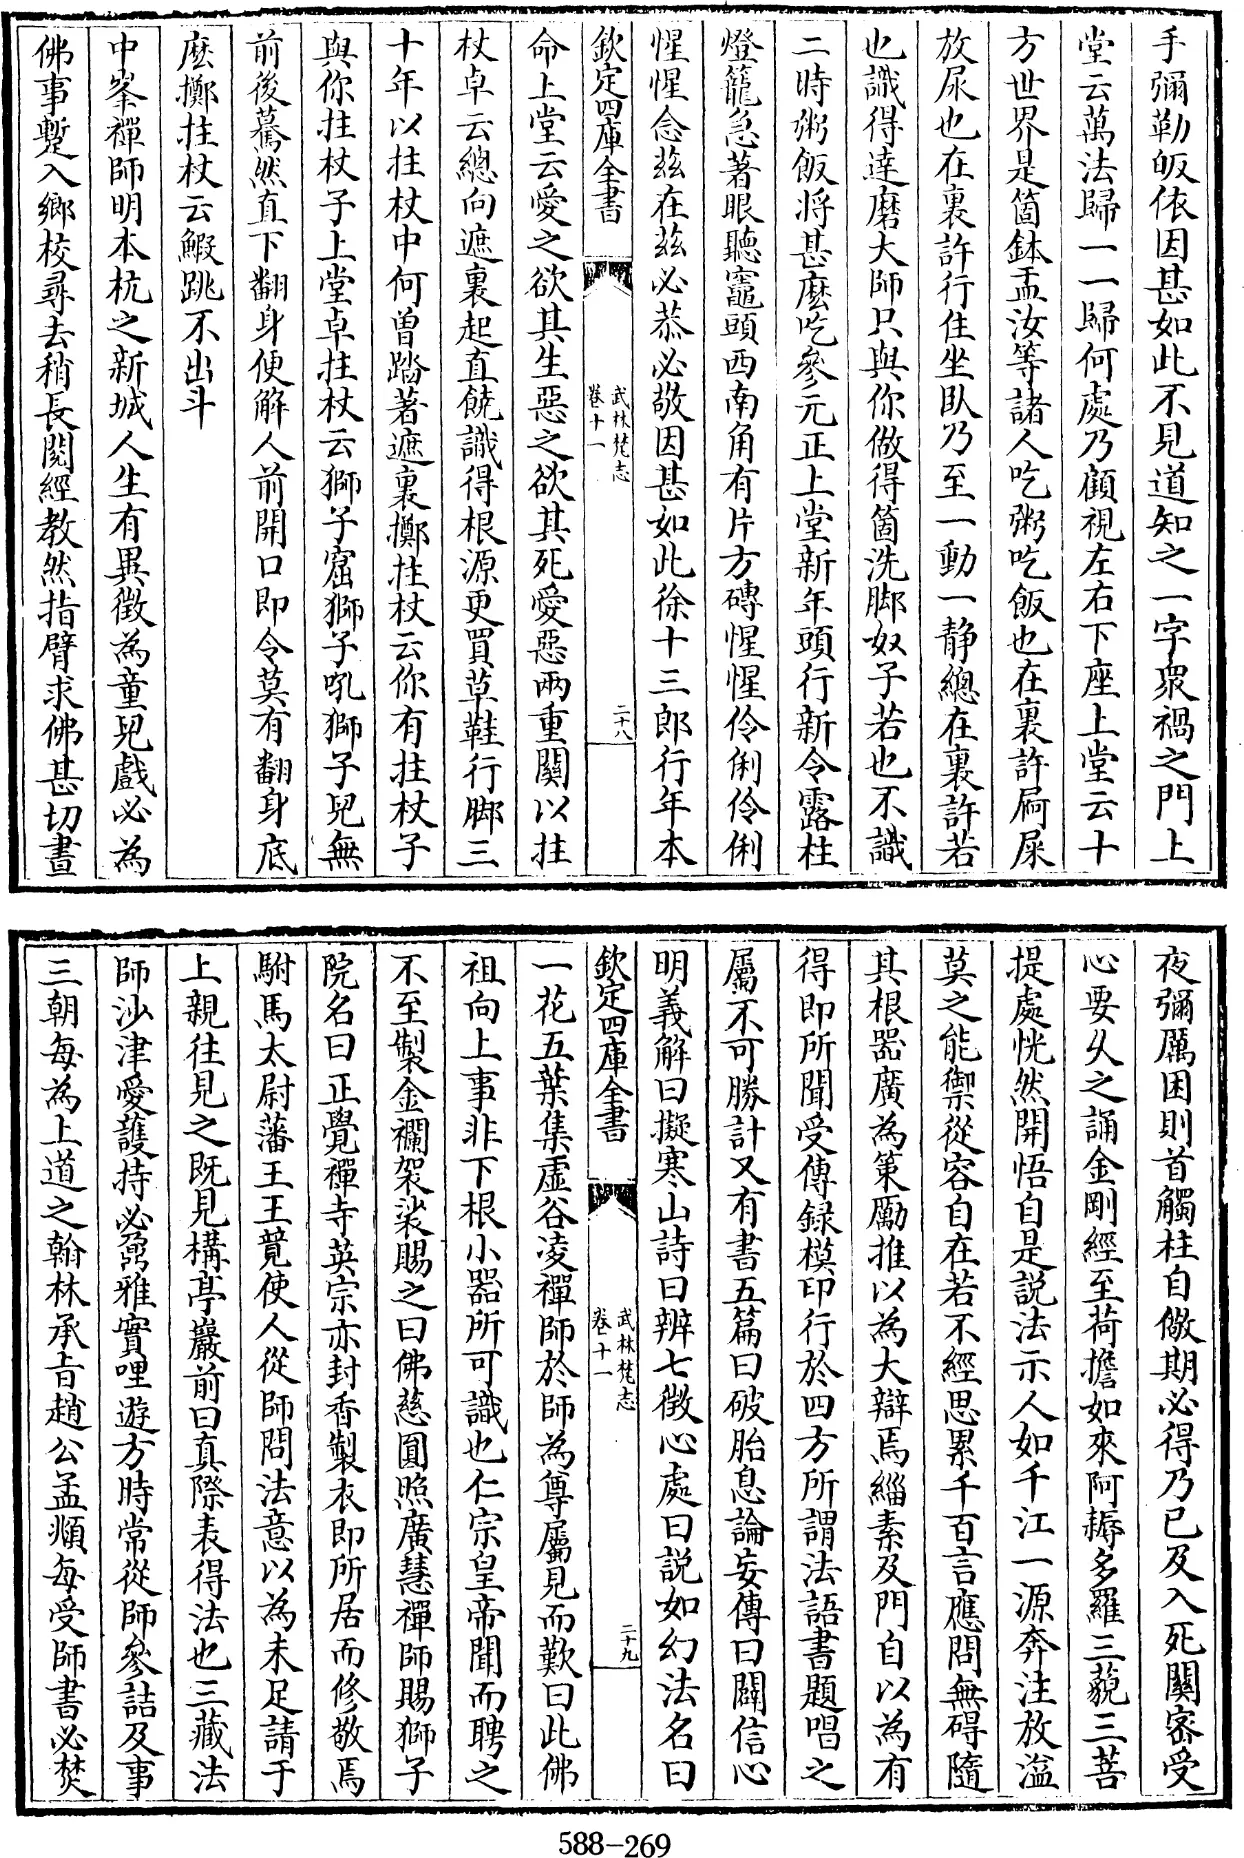 手彌勒皈依因甚如此不見道知之一字衆禍之門上
堂云萬法歸一一歸何處乃顧視左右下座上堂云十
方世界是箇鉢盂汝等諸人吃粥吃飯也在裏許屙屎
放尿也在裏許行住坐臥乃至一動一静總在裏許若
也識得達磨大師只與你做得箇洗脚奴子若也不識
二時粥飯將甚麽吃參元正上堂新年頭行新令露柱
燈籠急著眼聽竈頭西南角有片方磚惺惺伶俐伶俐
惺惺念兹在兹必恭必敬因甚如此徐十三郎行年本
欽定四庫全書
武林梵志
卷十一
二十八
命上堂云愛之欲其生惡之欲其死愛惡兩重關以拄
杖卓云總向遮裏起直饒識得根源更買草鞋行脚三
十年以拄杖中何曽踏著遮裏擲拄杖云你有拄杖子
與你拄杖子上堂卓拄杖云獅子窟獅子吼獅子兒無
前後驀然直下翻身便解人前開口即令莫有翻身底
麽擲拄杖云鰕跳不出斗
中峯禪師明本杭之新城人生有異徴為童兒戲必為
佛事蹔入鄉校尋去稍長閲經教然指臂求佛甚切晝
夜彌厲困則首觸柱自儆期必得乃已及入死關密受
心要久之誦金剛經至荷擔如來阿耨多羅三藐三菩
提處恍然開悟自是説法示人如千江一源奔注放溢
莫之能禦從容自在若不經思累千百言應問無碍隨
其根器廣為策勵推以為大辯焉緇素及門自以為有
得即所聞受傳録模印行於四方所謂法語書題唱之
屬不可勝計又有書五篇曰破胎息論妄傳曰闢信心
明義解曰擬寒山詩曰辨七徴心處曰説如幻法名曰
欽定四庫全書
武林梵志
卷十一
二十九
一花五葉集虛谷凌禪師於師為尊屬見而歎曰此佛
祖向上事非下根小器所可識也仁宗皇帝聞而聘之
不至製金襴袈裟賜之曰佛慈圓照廣慧禪師賜獅子
院名曰正覺禪寺英宗亦封香製衣即所居而修敬焉
駙馬太尉藩王王覔使人從師問法意以為未足請于
上親往見之既見構亭巖前曰真際表得法也三藏法
師沙津愛護持必剌雅實哩遊方時常從師參詰及事
三朝每為上道之翰林承旨趙公孟頫每受師書必焚
588-269